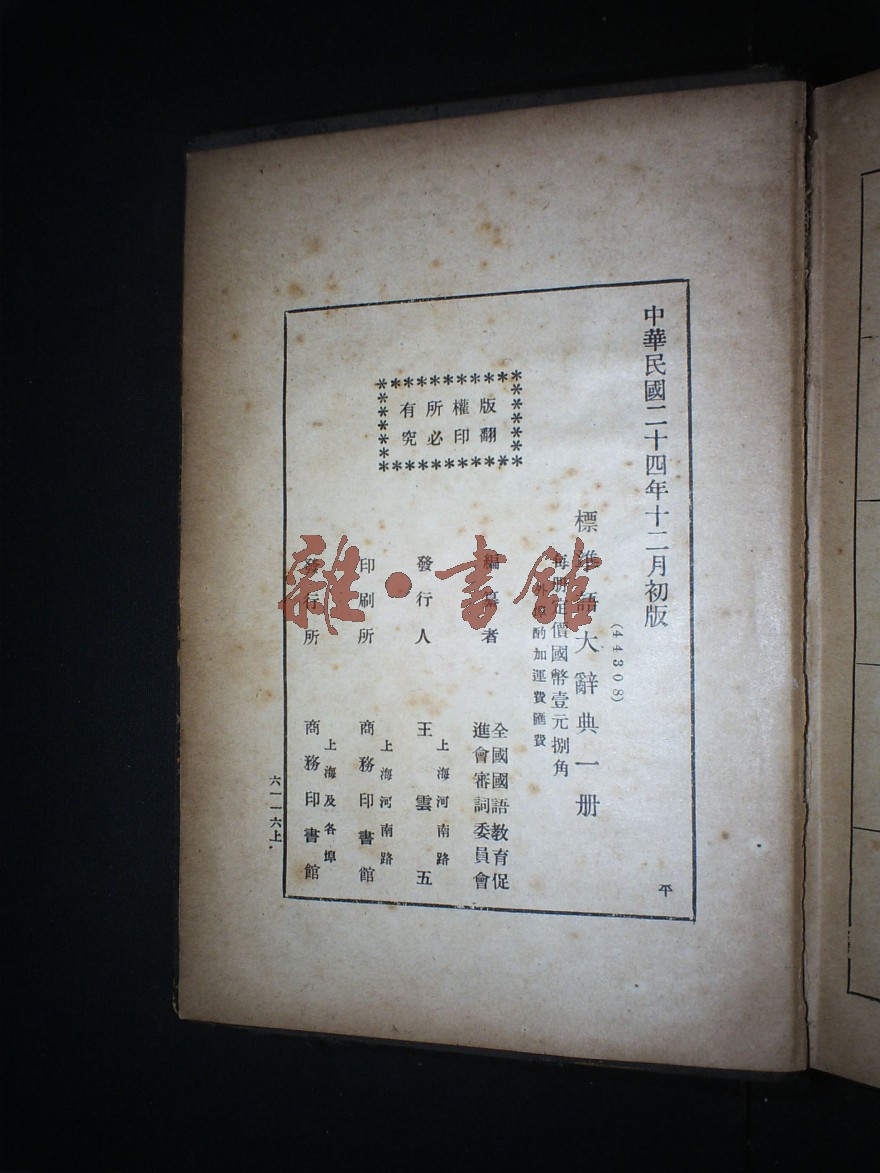 中華民國二十四年十二月初版
(44308)
標準語大辭典一册
每册定價國幣壹元捌角
外埠酌加運費匯費
版權所有
翻印必究
編纂者
全國國語教育促
進會審詞委員會
發行人
上海河南路
王雲五
印刷所
上海河南路
商務印書館
發行所
上海及各埠
商務印書館
六一一六上
平
雜·書館